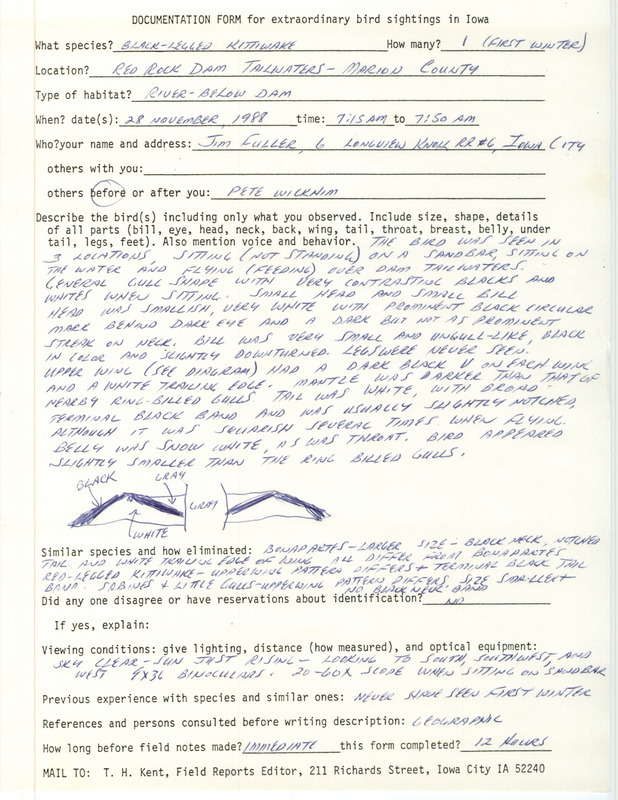 DOCUMENTATION FORM for extraordinary bird sightings in Iowa
What species? BLACK-LEGGED KITTIWAKE How many? 1 (FIRST WINTER)
Location? RED ROCK DAM TAILWATERS - MARION COUNTY
Type of habitat? RIVER-BELOW DAM
When? date(s): 28 NOVEMBER, 1988 time: 7:15 AM to 7:50 AM
Who?your name and address: JIM FULLER, 6 LONGVIEW KNOLL RR#6, IOWA CITY
others with you:
others before or after you: PETE WICKHAM
Describe the bird(s) including only what you observed. Include size, shape, details
of all parts (bill, eye, head, neck, back, wing, tail, throat, breast, belly, under
tail, legs, feet). Also mention voice and behavior. THE BIRD WAS SEEN IN
3 LOCATIONS, SITTING (NOT STANDING) ON A SANDBAR, SITTING ON
THE WATER AND FLYING (FEEDING) OVER DAM TAILWATERS.
GENERAL GULL SHAPE WITH VERY CONTRASTING BLACKS AND
WHITES WHEN SITTING. SMALL HEAD AND SMALL BILL
HEAD WAS SMALLISH, VERY WHITE WITH PROMINENT BLACK CIRCULAR
MARK BEHIND DARK EYE AND A DARK BUT NOT AS PROMINENT
STREAK ON NECK. BILL WAS VERY SMALL AND UNGULL-LIKE, BLACK
IN COLOR AND SLIGHTLY DOWNTURNED. LEGS WERE NEVER SEEN.
UPPER WING (SEE DIAGRAM) HAD A DARK BLACK V ON EACH WING
AND A WHITE TRAILING EDGE. MANTLE WAS DARKER THAN THAT OF
NEARBY RING-BILLED GULLS. TAIL WAS WHITE, WITH BROAD
TERMINAL BLACK BAND AND WAS USUALLY SLIGHTLY NOTCHED,
ALTHOUGH IT WAS SQUARISH SEVERAL TIMES WHEN FLYING.
BELLY WAS SNOW WHITE, AS WAS THROAT. BIRD APPEARED
SLIGHTLY SMALLER THAN THE RING BILLED GULLS.
BLACK GRAY
GRAY
WHITE
Similar species and how eliminated: BONAPARTES-LARGER SIZE - BLACK NECK, NOTCHED
TAIL AND WHITE TRAILING EDGE OF WING ALL DIFFER FROM BONAPARTES
RED-LEGGED KITTIWAKE - UPPERWING PATTERN DIFFERS + TERMINAL BLACK TAIL
BAND. SABINES + LITTLE GULLS-UPPERWING PATTERN DIFFERS SIZE SMALLER +
NO BLACK NECK BAND
Did any one disagree or have reservations about identification? NO
If yes, explain:
Viewing conditions: give lighting, distance (how measured), and optical equipment:
SKY CLEAR - SUN JUST RISING - LOOKING TO SOUTH, SOUTHWEST, AND
WEST 9X36 BINOCULARS. 20-60X SCOPE WHEN SITTING ON SANDBAR
Previous experience with species and similar ones: NEVER HAVE SEEN FIRST WINTER
References and persons consulted before writing description: GEOGRAPHIC
How long before field notes made? IMMEDIATE this form completed? 12 HOURS
MAIL TO: T. H. Kent, Field Reports Editor, 211 Richards Street, Iowa City IA 52240